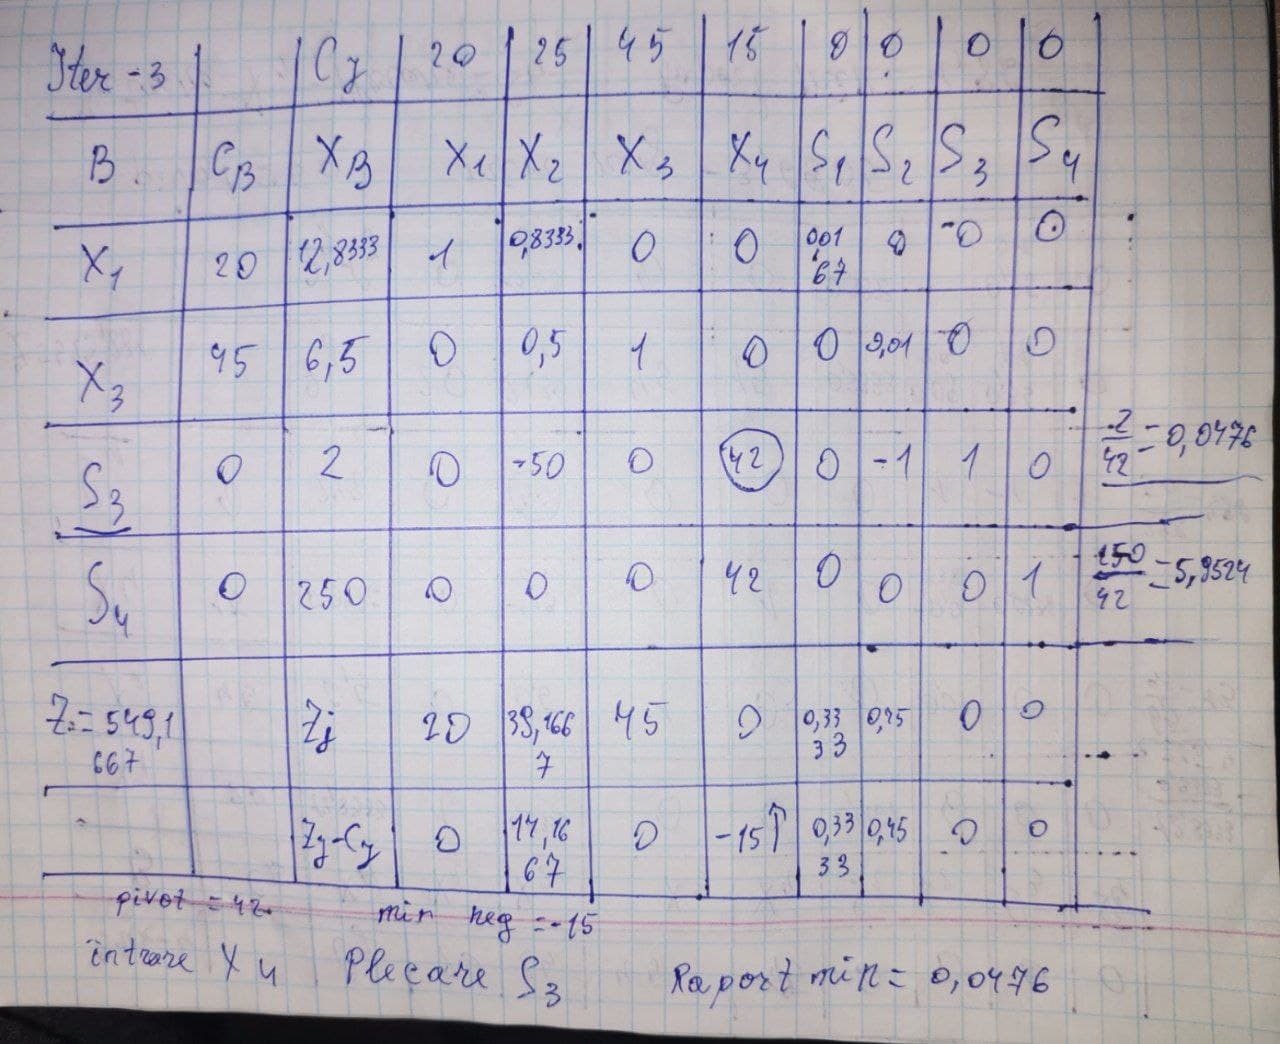 Iter -3 Cj 20 25 45 15 0 0 0 0
B CB XB X1 X2 X3 X4 S1 S2 S3 S4
X1 20 12,8333 1 0,8333 0 0 0,0167 0 0 0
X3 45 6,5 0 0,5 1 0 0 0,01 0 0
S3 0 2 0 -50 0 42 0 -1 1 0 2/42 = 0,0476
S4 0 250 0 0 0 42 0 0 0 1 250/42 = 5,9524
Z = 549,1667 Zj 20 39,1667 45 0 0,3333 0,45 0 0
Zj-Cj 0 14,1667 0 -15↑ 0,3333 0,45 0 0
pivot = 42 min neg = -15
intrare X4 Plecare S3 Raport min = 0,0476